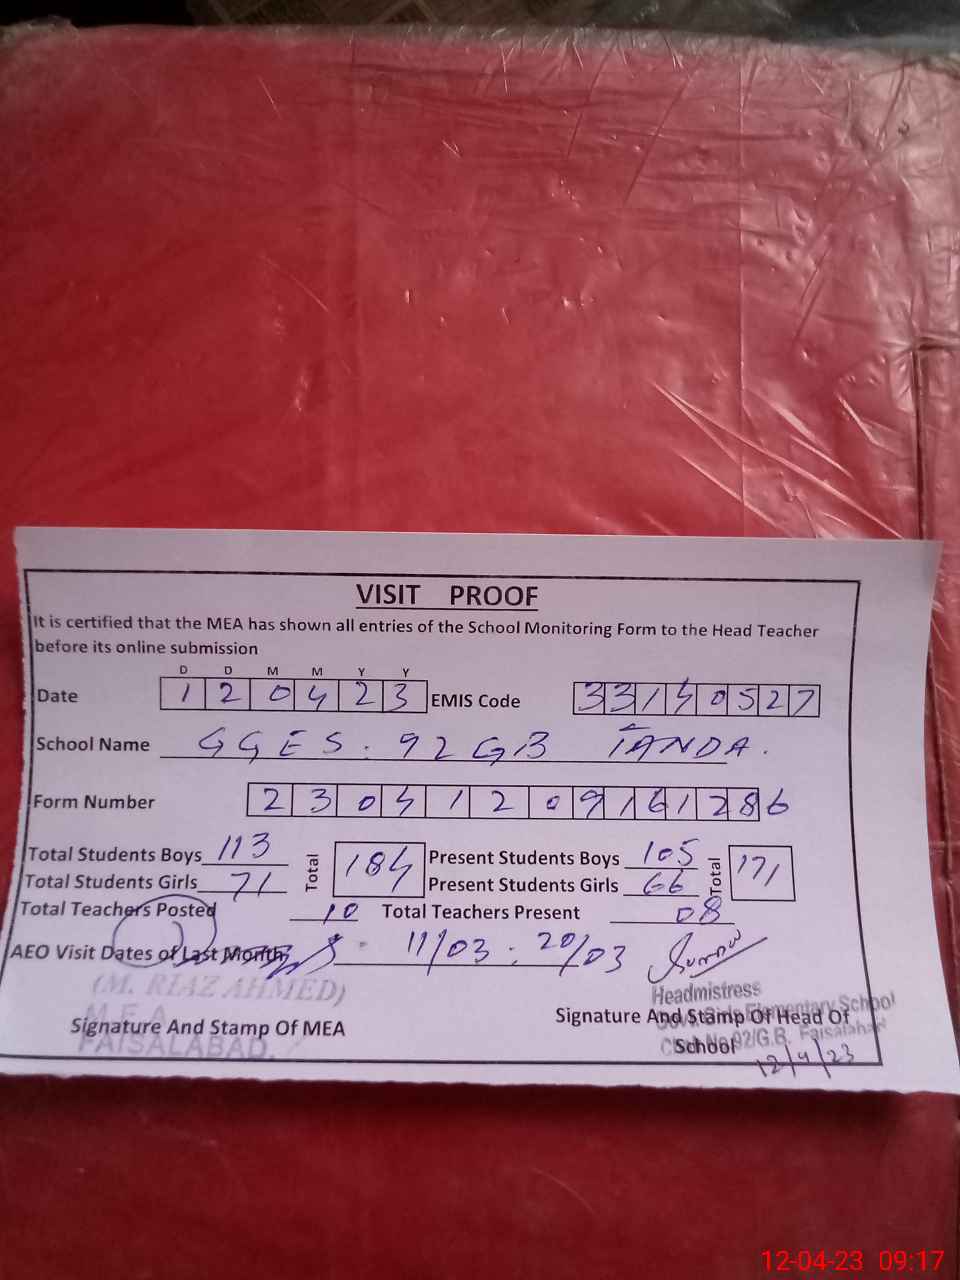 VISIT PROOF
It is certified that the MEA has shown all entries of the School Monitoring Form to the Head Teacher
before its online submission
D D M M Y Y
Date 1 2 0 4 2 3 EMIS Code 3 3 1 4 0 5 2 7
School Name GGES. 92 GB TANDA.
Form Number 2 3 0 4 1 2 0 9 1 6 1 2 8 6
Total Students Boys 113 Total 184 Present Students Boys 105 Total 171
Total Students Girls 71 Present Students Girls 66
Total Teachers Posted 10 Total Teachers Present 08
AEO Visit Dates of Last Month 11/03 . 20/03
(M. RIAZ AHMED)
M.E.A
FAISALABAD.
Signature And Stamp Of MEA
Headmistress
Govt. Girls Elementary School
Chak No.92/G.B. Faisalabad
Signature And Stamp Of Head Of
School
12/4/23
12-04-23 09:17